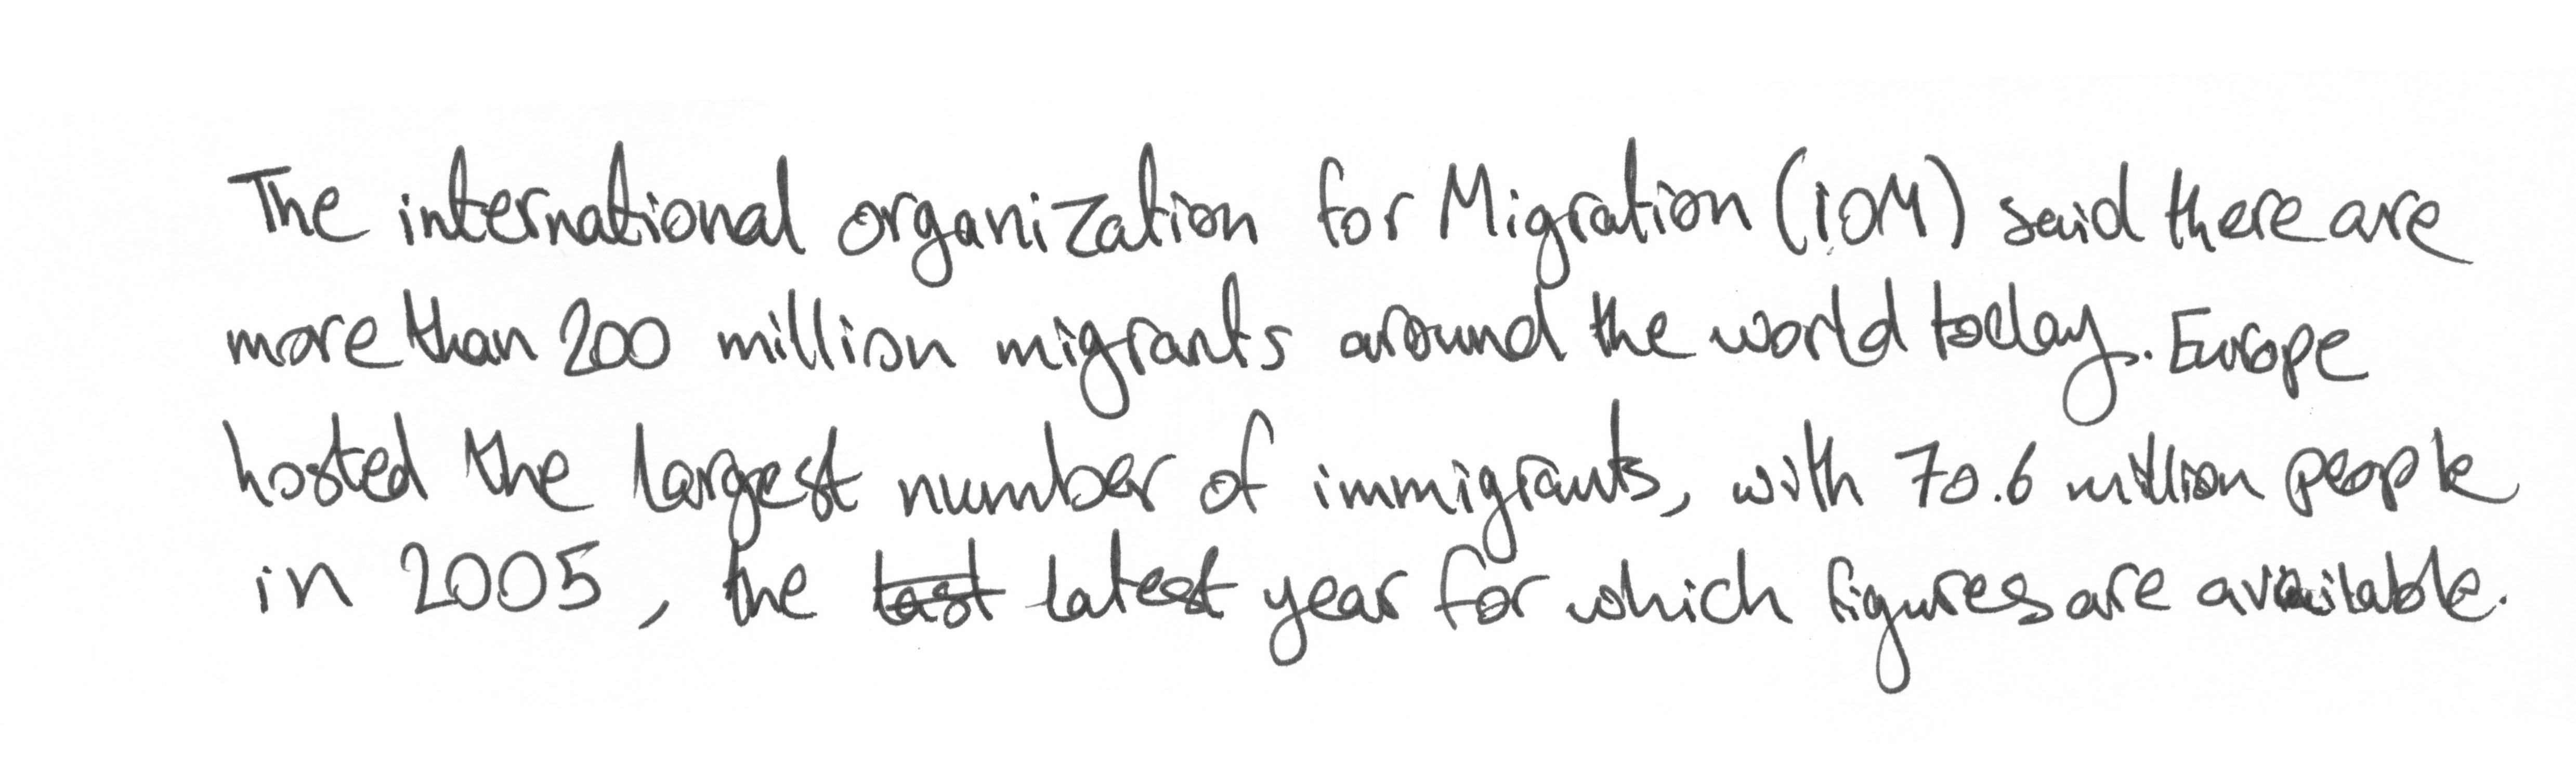 The international organization for Migration (iOM) said there are
more than 200 million migrants around the world today. Europe
hosted the largest number of immigrants, with 70.6 million people
in 2005, the last latest year for which figures are available.